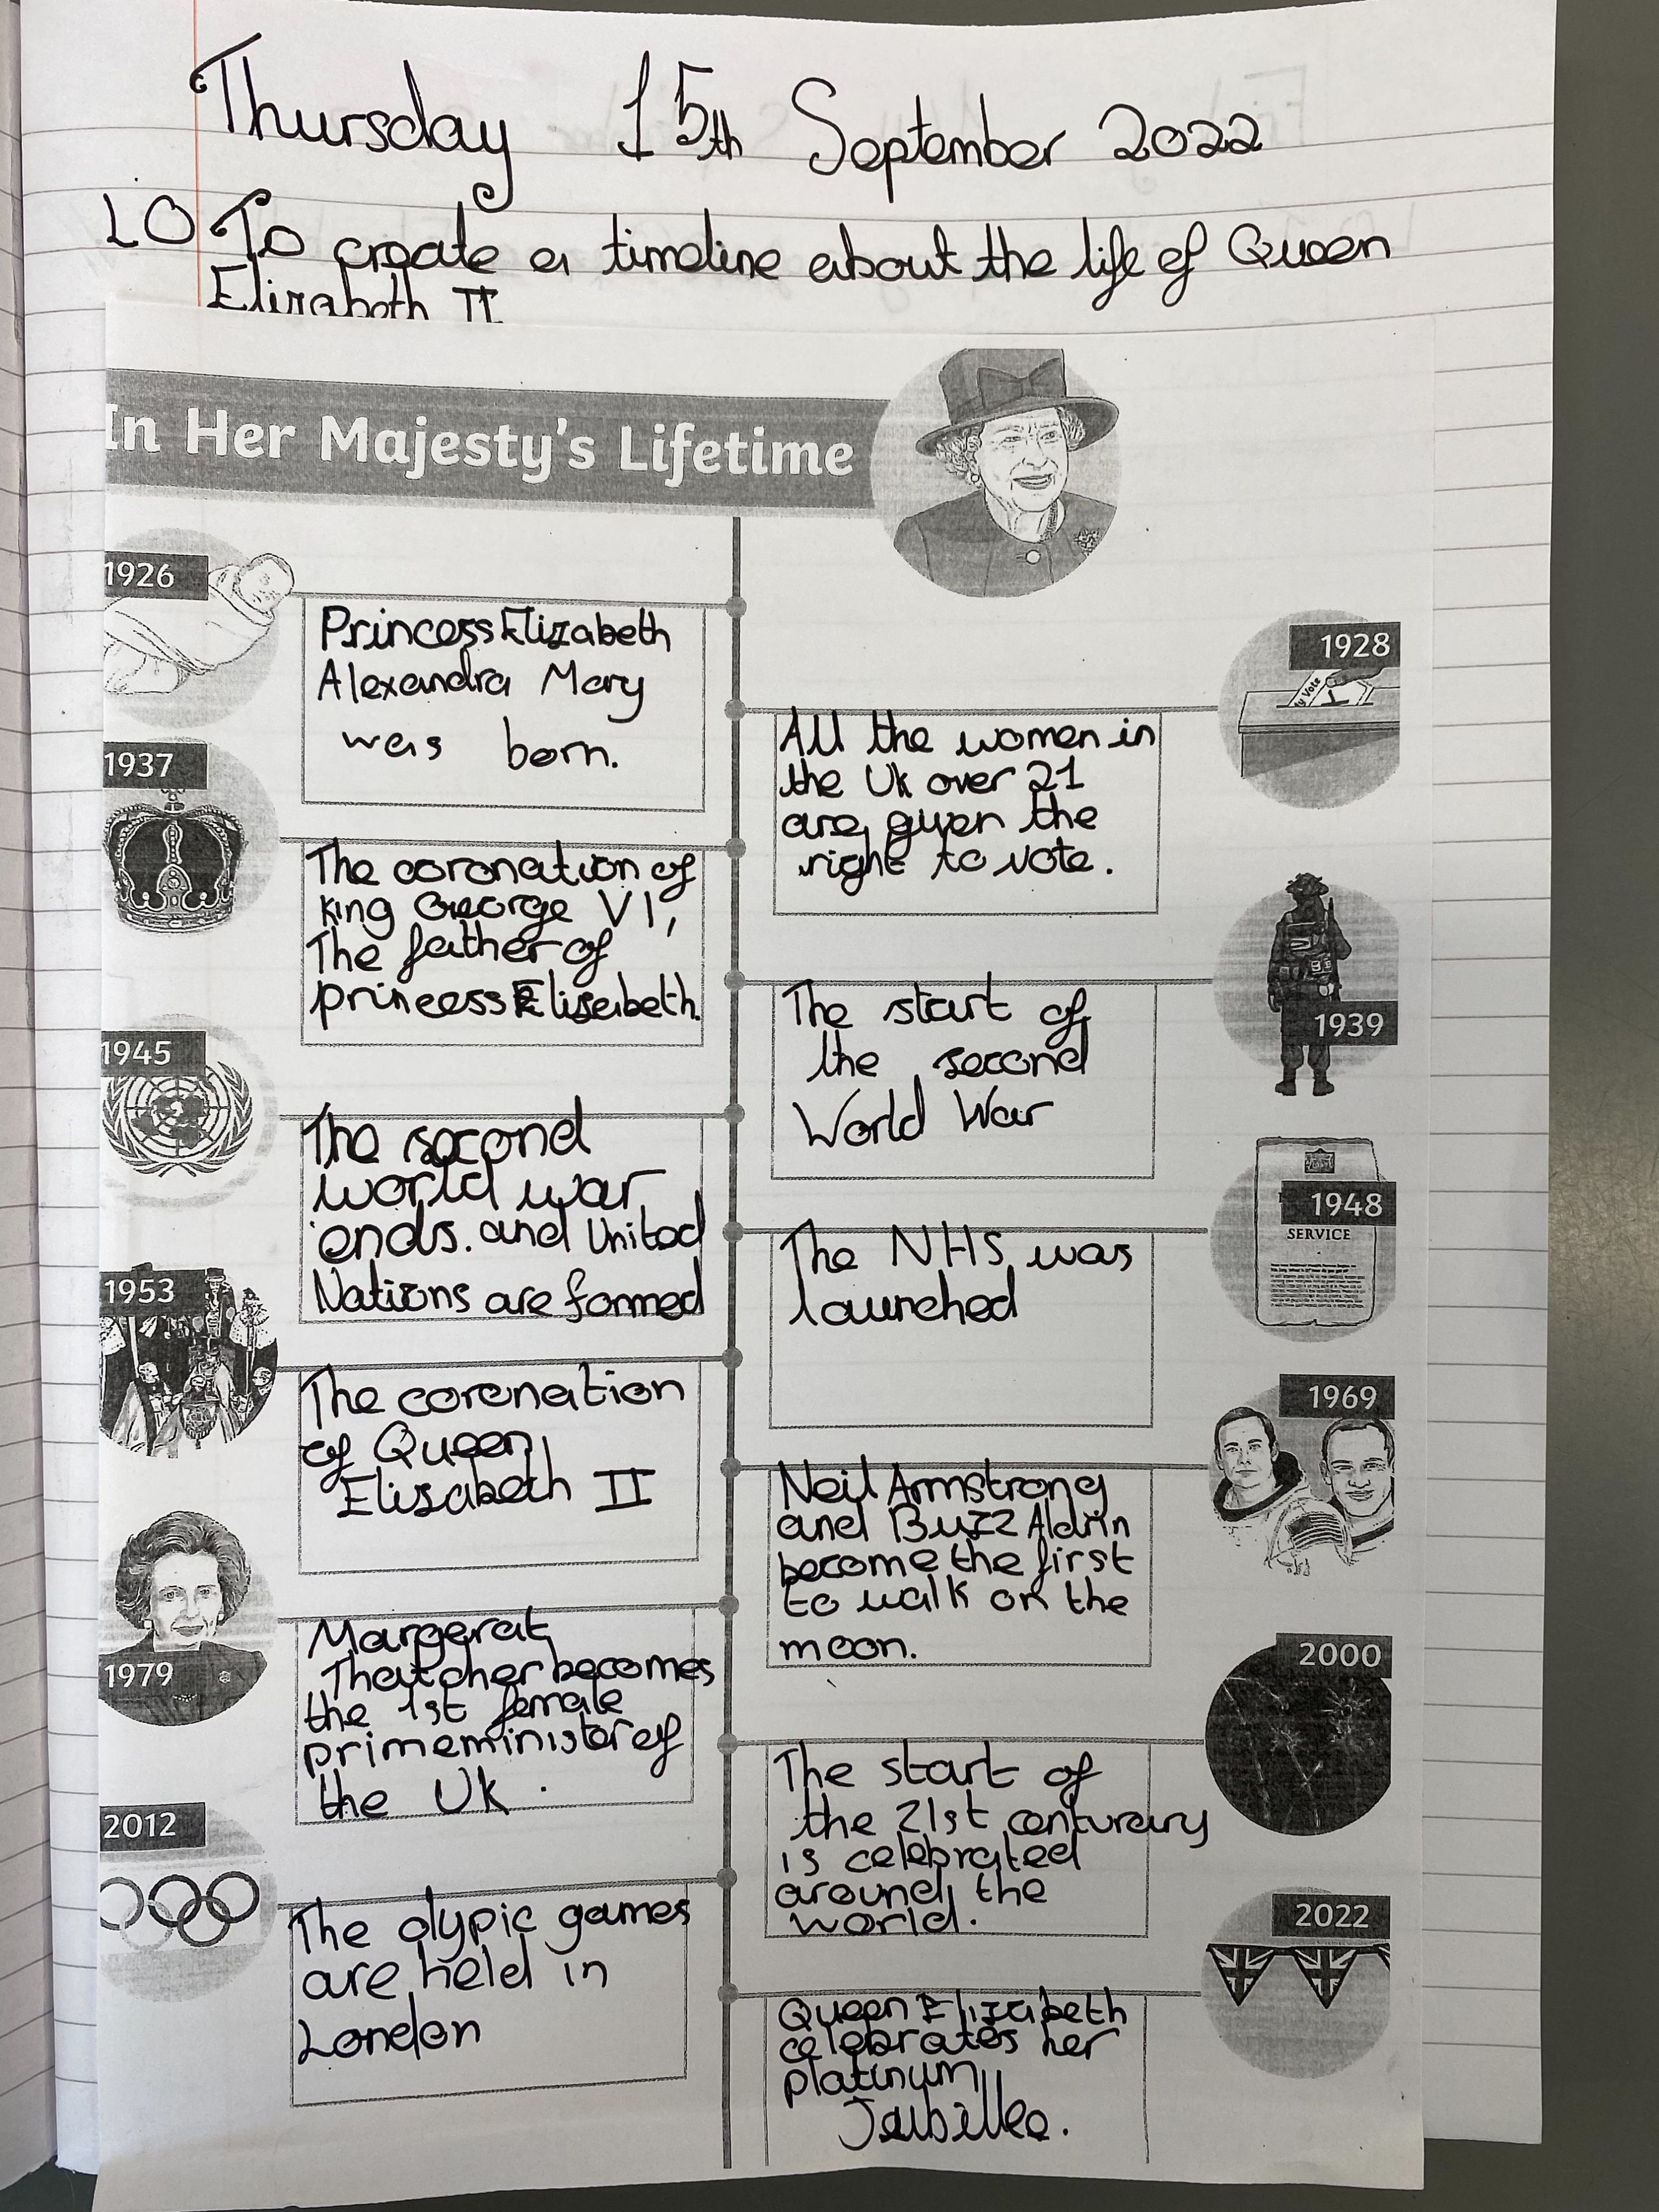 Thursday 15th September 2022
LO To create a timeline about the life of Queen
Elizabeth II
In Her Majesty's Lifetime
1926
Princess Elizabeth
Alexandra Mary
was born.
1928
y Vote
All the women in
the Uk over 21
are given the
right to vote.
1937
The coronation of
King George VI,
The father of
princess Elizabeth.
1939
The start of
the second
World War
1945
The second
world war
ends. and United
Nations are formed
1948
SERVICE
The NHS was
launched
1953
The coronation
of Queen
Elizabeth II
1969
Neil Armstrong
and Buzz Aldrin
become the first
to walk on the
moon.
1979
Margerat
Thatcher becomes
the 1st female
primeminister of
the Uk.
2000
The start of
the 21st centurary
is celebrated
around the
world.
2012
The olypic games
are held in
London
2022
Queen Elizabeth
celebrates her
platinum
Jubillee.